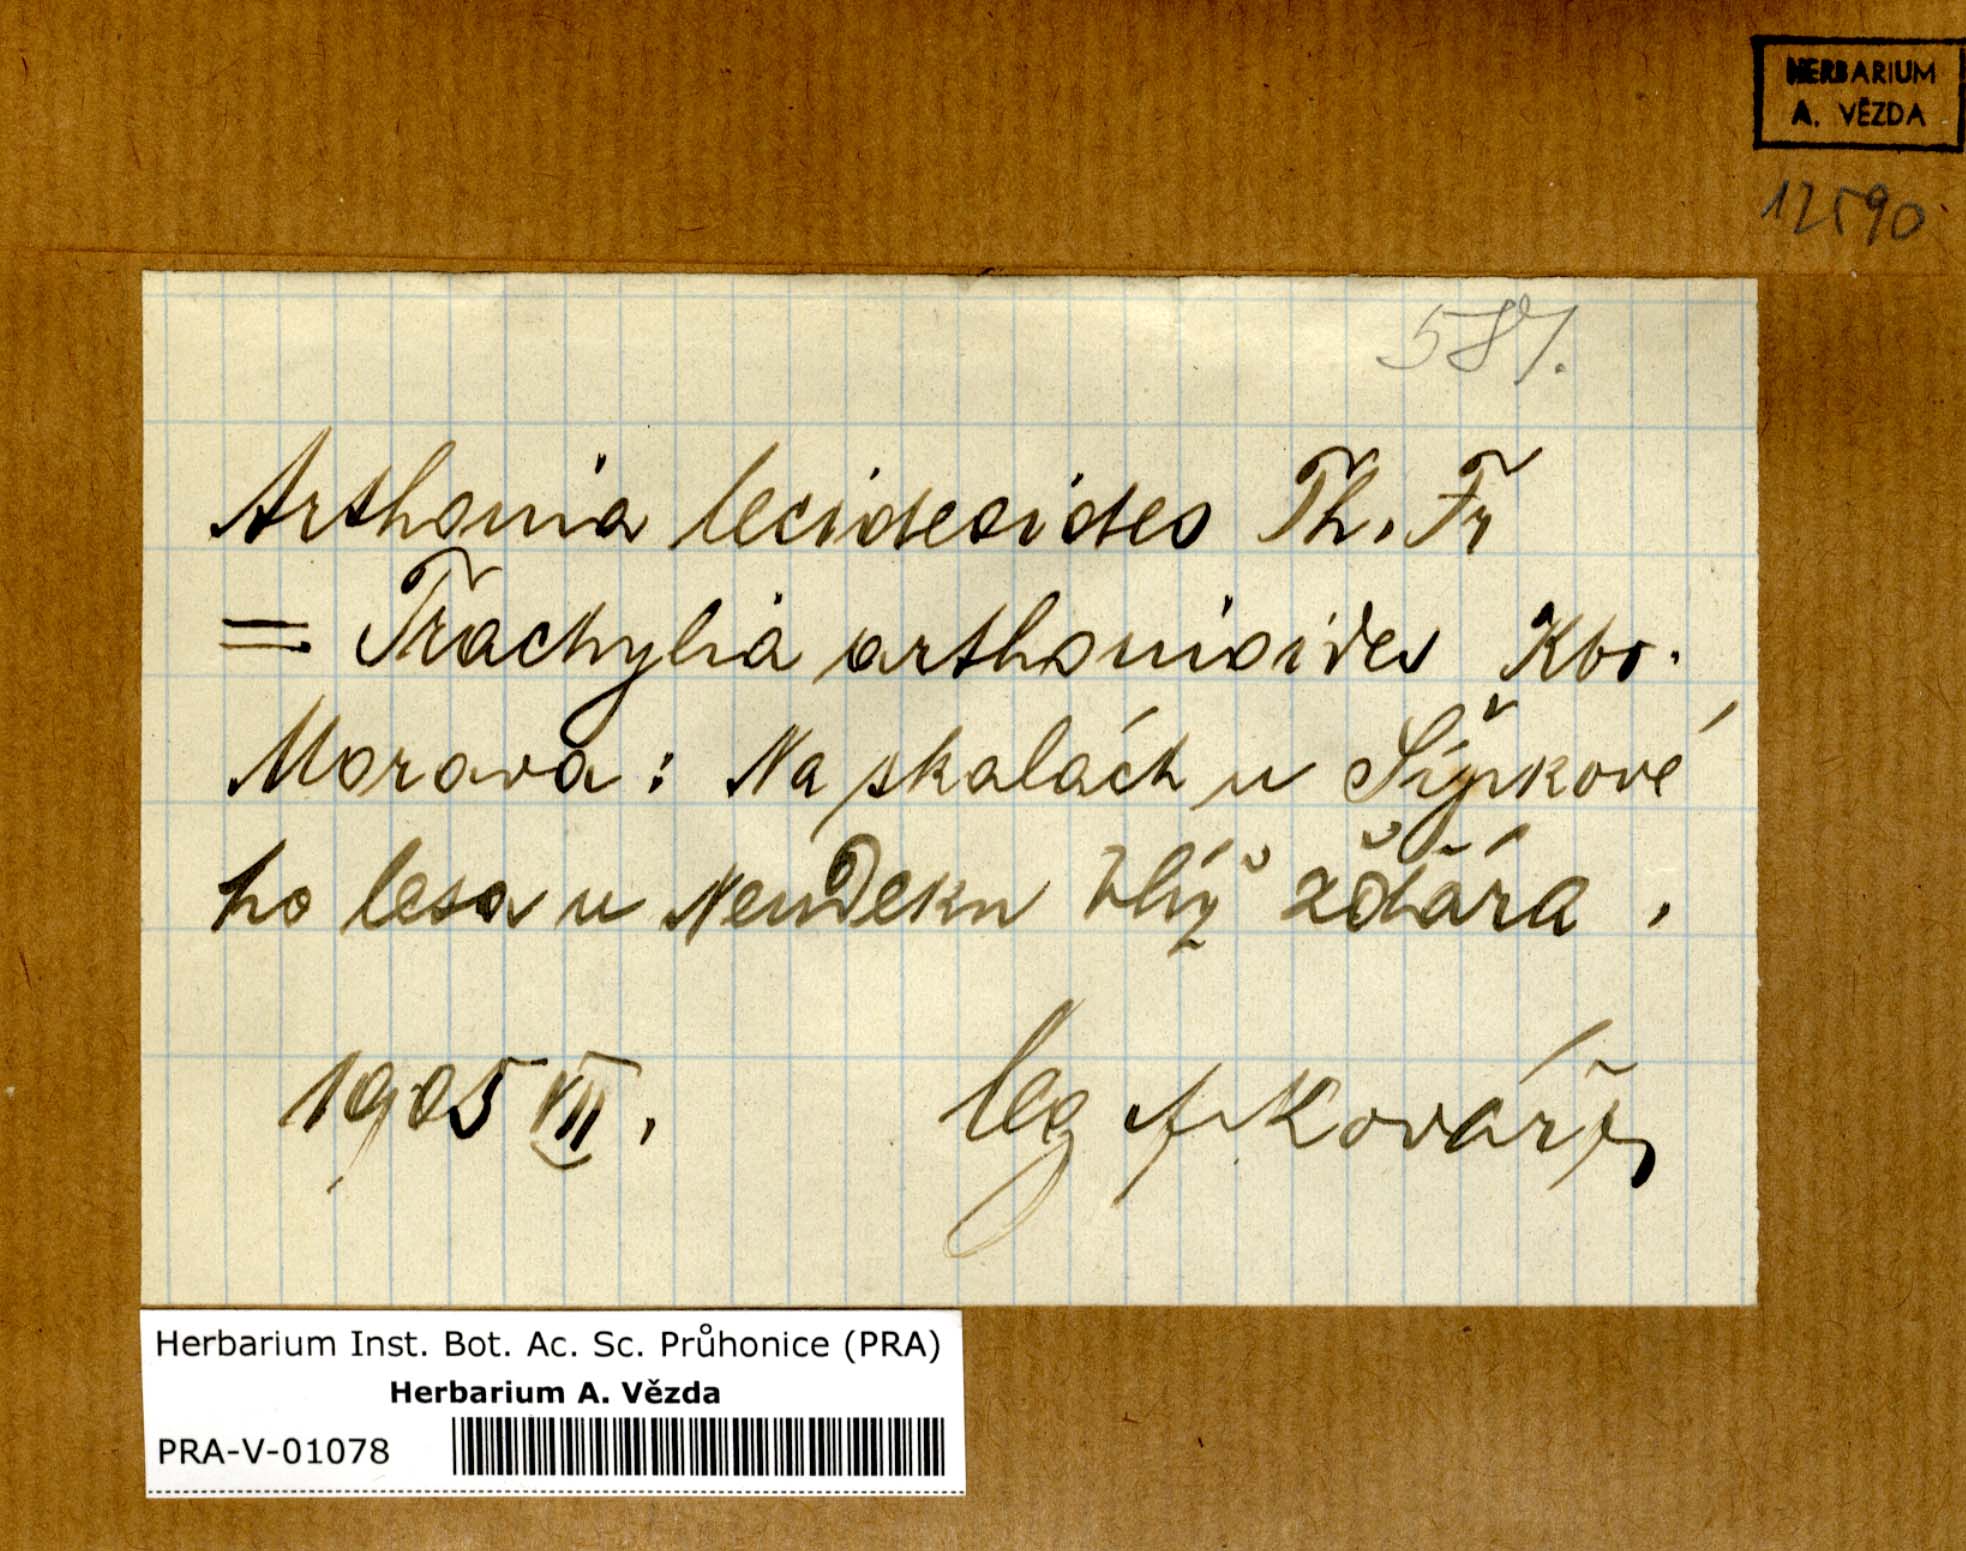 HERBARIUM
A. VĚZDA
12590
581.
Arthonia lecideoides Th. Fr
= Trachylia arthonioides Kbr.
Morava: Na skalách u Šípkové
ho lesa u Neudeku blíž Žďára.
1905 VII.
leg F Kovář
Herbarium Inst. Bot. Ac. Sc. Průhonice (PRA)
Herbarium A. Vězda
PRA-V-01078